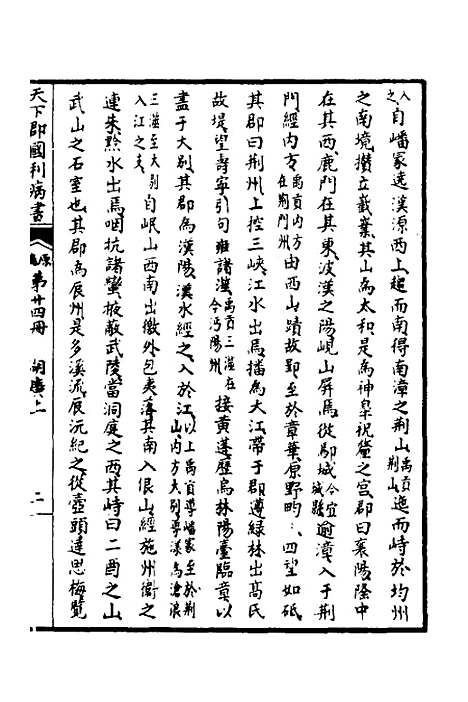 入之自嶓冢逸溪源西上趨而南得南漳之荆山禹貢荆山迤而峙於均州
之南境攢立巀嶪其山為太和是為神皐祝釐之宮郡曰襄陽隆中
在其西鹿門在其東波漢之陽峴山屏焉從鄢城今宜城縣逾漳入于荆
門經内方禹貢内方在荆門州由西山蹟故郢至於章華原野畇畇四望如砥
其郡曰荆州上控三峽江水出焉播為大江帶于郡遵緑林出高氏
故堤望壽寧引句雍諸澨禹貢三澨在今沔陽州接黄蓬歷烏林陽臺臨章以
盡于大别其郡為漢陽漢水經之入於江以上禹貢導嶓冢至於荆山内方大别導漢為滄浪
三澨至大别入江之文自岷山西南出徼外包夷落其南入佷山經施州衛之
連朱黔水出焉咽抗諸蠻掖蔽武陵當洞庭之西其峙曰二酉之山
武山之石室也其郡為辰州是多溪流辰沅紀之從壺頭達思梅覽
天下郡國利病書 原編第廿四冊 湖廣上 二